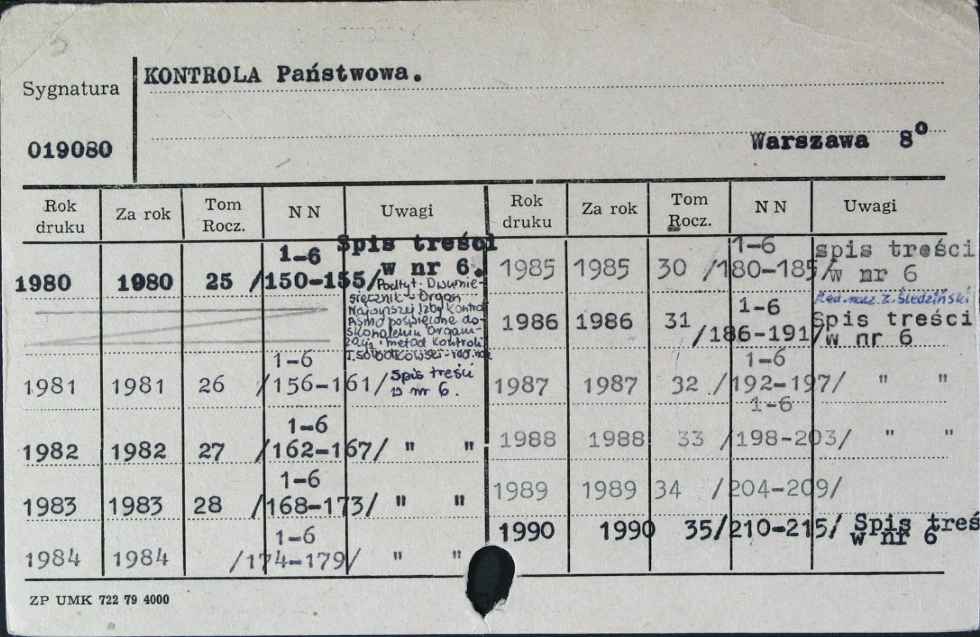 Sygnatura
019080
KONTROLA Państwowa.
Warszawa 8º
Rok druku Za rok Tom Rocz. N N Uwagi
1980 1980 25 1-6 /150-155/ Spis treści w nr 6.
Podtyt. Dwumie-
sięcznik - Organ
Najwyższej Izby Kontroli
Pismo poświęcone do-
skonaleniu organi-
zacji i metod kontroli
1981 1981 26 1-6 /156-161/ Spis treści w nr 6.
1982 1982 27 1-6 /162-167/ " "
1983 1983 28 1-6 /168-173/ " "
1984 1984 1-6 /174-179/ " "
Rok druku Za rok Tom Rocz. N N Uwagi
1985 1985 30 1-6 /180-185/ spis treści w nr 6
Red. nacz. Z. Śledziński
1986 1986 31 1-6 /186-191/ Spis treści w nr 6
1987 1987 32 1-6 /192-197/ " "
1988 1988 33 1-6 /198-203/ " "
1989 1989 34 /204-209/
1990 1990 35 /210-215/ Spis treś w nr 6
ZP UMK 722 79 4000